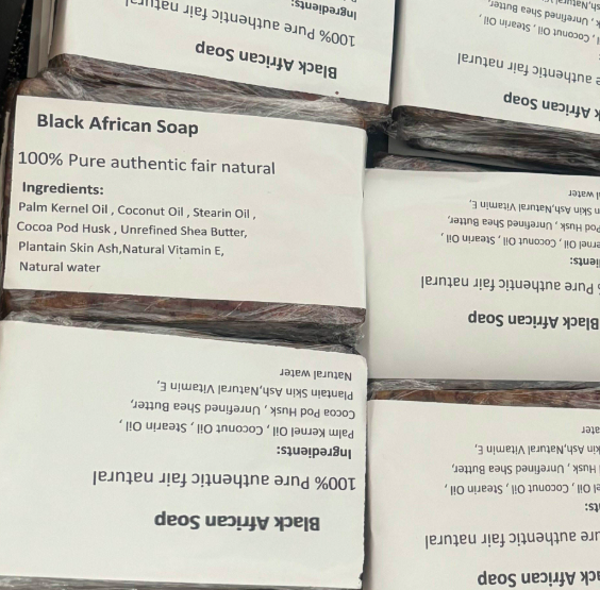 Ingredients:
100% Pure authentic fair natural
Black African Soap
k, Unrefined Shea Butter,
, Coconut Oil , Stearin Oil ,
authentic fair natural
African Soap
Black African Soap
100% Pure authentic fair natural
Ingredients:
Palm Kernel Oil , Coconut Oil , Stearin Oil ,
Cocoa Pod Husk , Unrefined Shea Butter,
Plantain Skin Ash,Natural Vitamin E,
Natural water
Black African Soap
Pure authentic fair natural
ients:
ernel Oil , Coconut Oil , Stearin Oil ,
Pod Husk , Unrefined Shea Butter,
n Skin Ash,Natural Vitamin E,
al water
Black African Soap
100% Pure authentic fair natural
Ingredients:
Palm Kernel Oil , Coconut Oil , Stearin Oil ,
Cocoa Pod Husk , Unrefined Shea Butter,
Plantain Skin Ash,Natural Vitamin E,
Natural water
ck African Soap
ure authentic fair natural
ts:
el Oil , Coconut Oil , Stearin Oil ,
Husk , Unrefined Shea Butter,
kin Ash,Natural Vitamin E,
ater